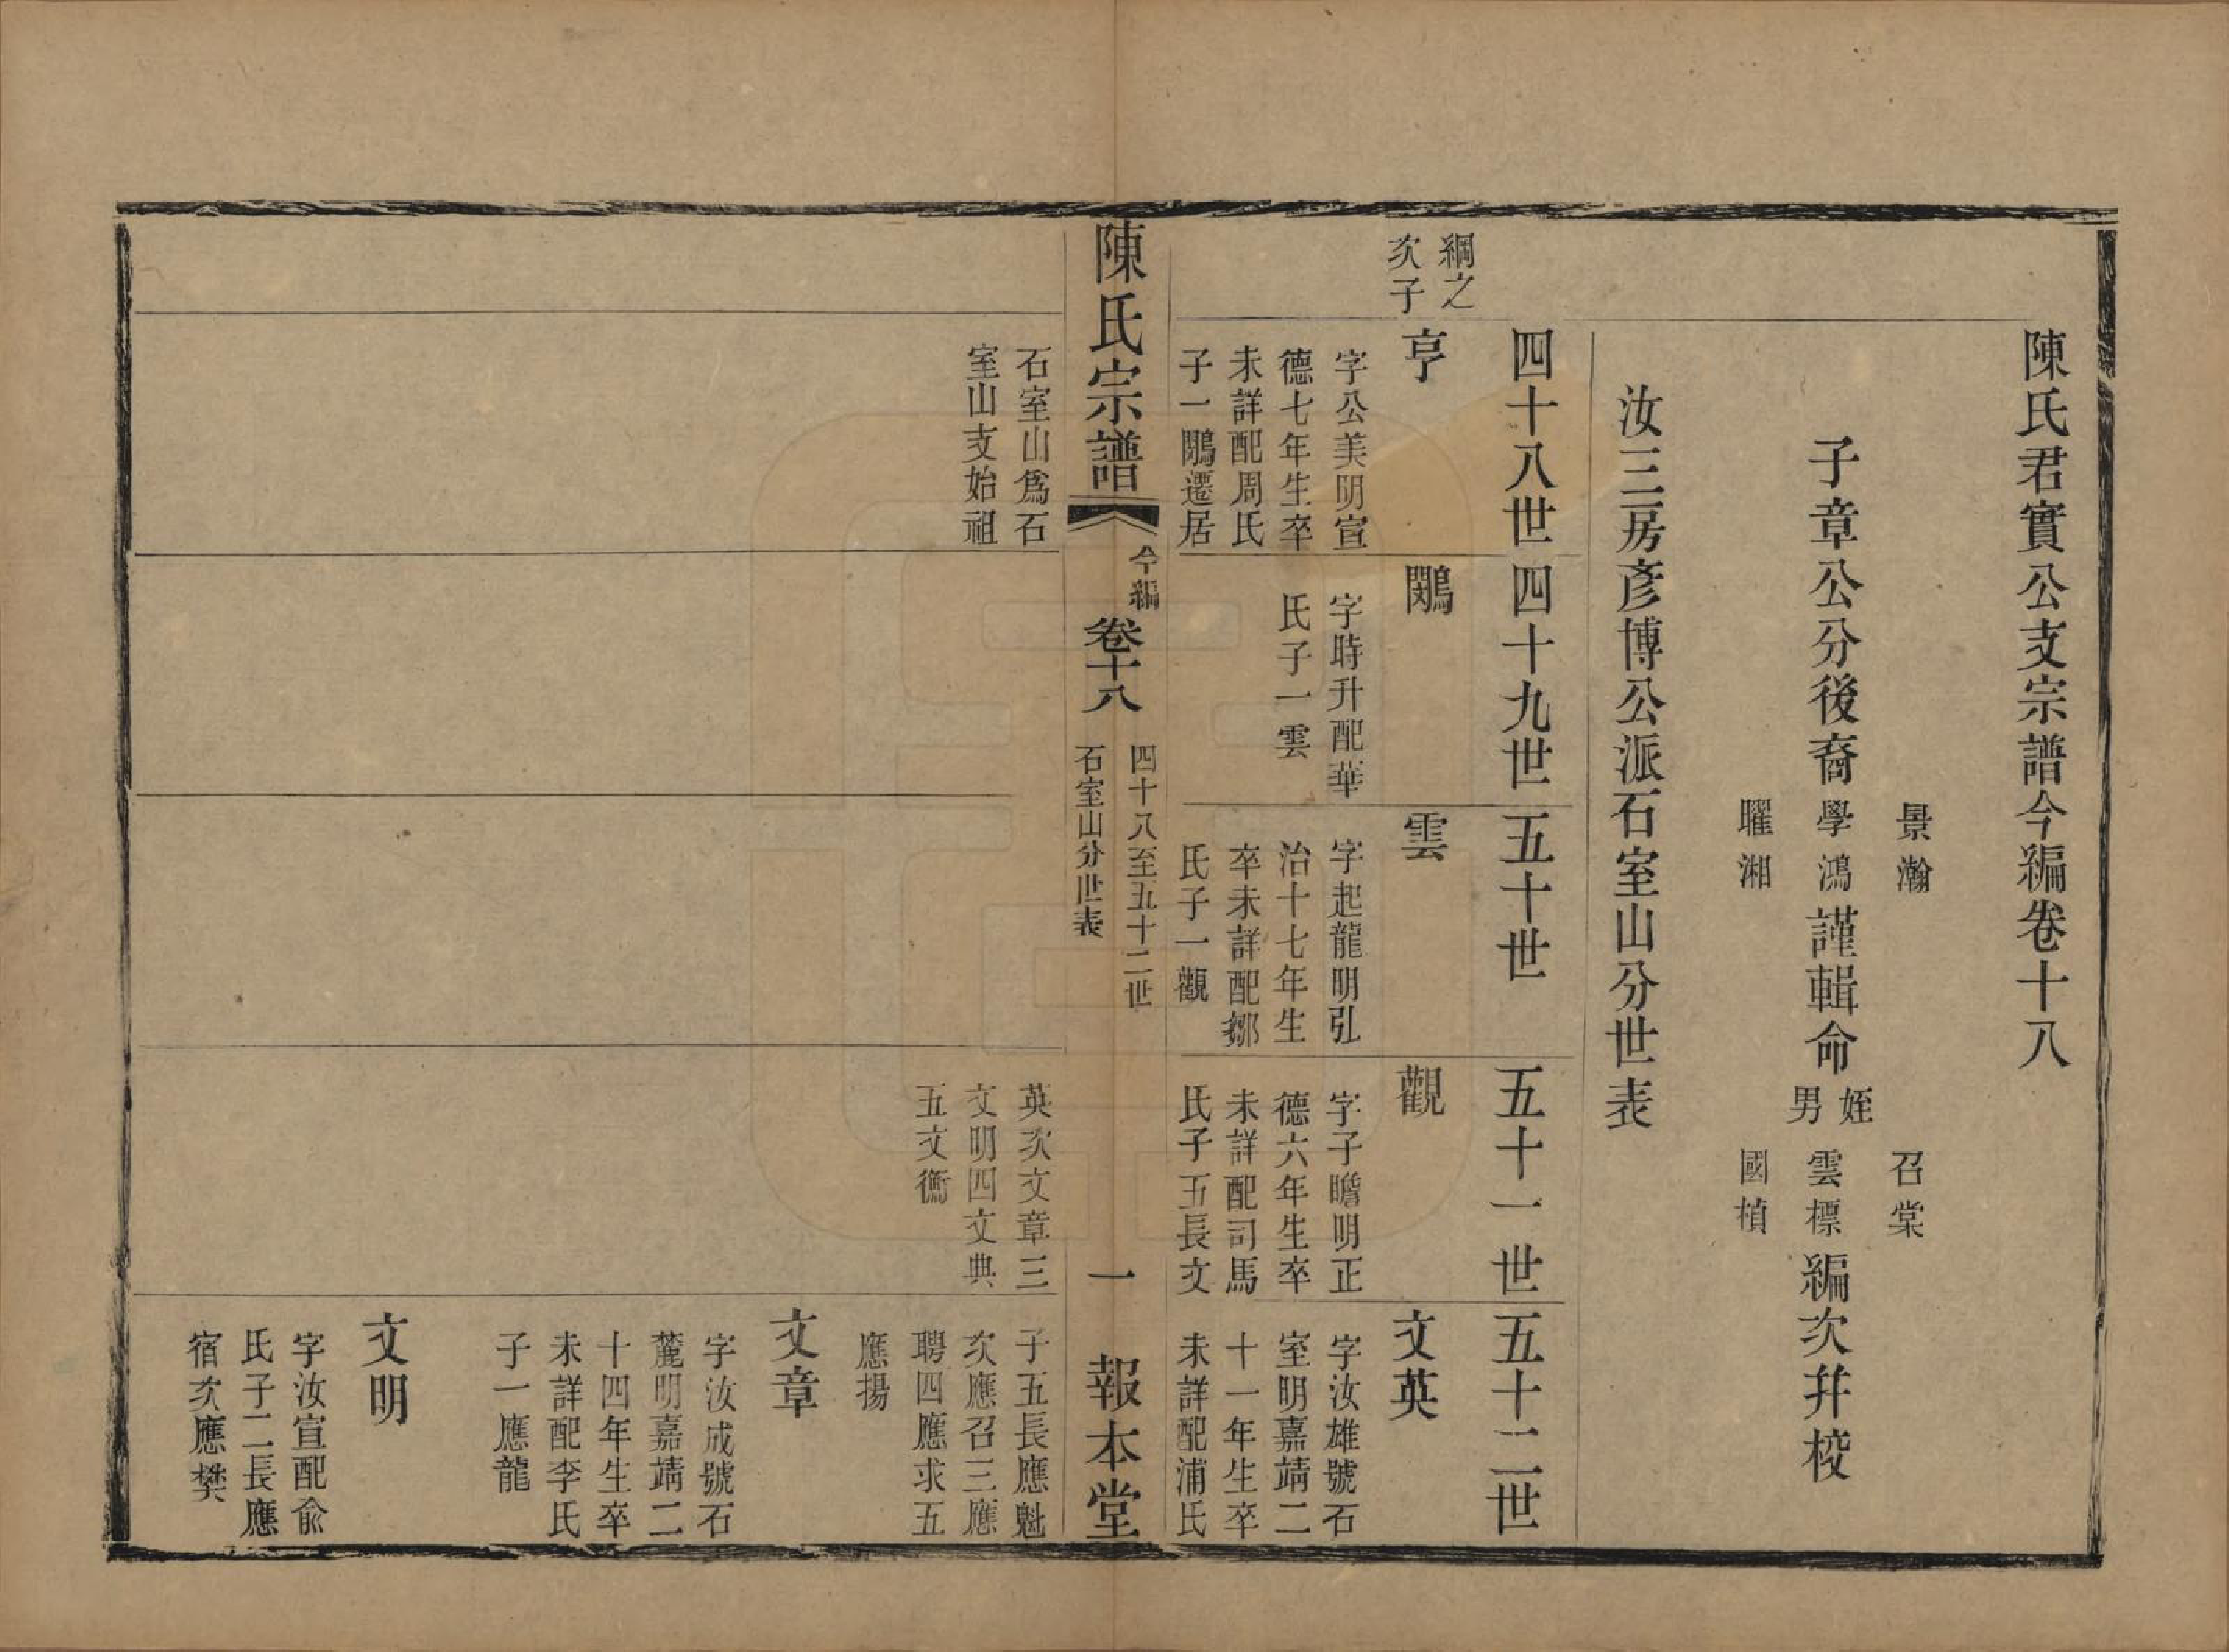 陳氏君實公支宗譜今編卷十八
景瀚
子章公分後裔學鴻謹輯命
矅湘
姪
男
召棠
雲標編次幷校
國楨
汝三房彥博公派石室山分世表
四十八世
四十九世
五十世
五十一世
五十二世
綱之
次子
亨
字公美明宣
德七年生卒
未詳配周氏
子一鷳遷居
石室山爲石
室山支始祖
鷳
字時升配華
氏子一雲
雲
字起龍明弘
治十七年生
卒未詳配鄒
氏子一觀
觀
字子瞻明正
德六年生卒
未詳配司馬
氏子五長文
英次文章三
文明四文典
五文衡
文英
字汝雄號石
室明嘉靖二
十一年生卒
未詳配浦氏
子五長應魁
次應召三應
聘四應求五
應揚
文章
字汝成號石
麓明嘉靖二
十四年生卒
未詳配李氏
子一應龍
文明
字汝宣配兪
氏子二長應
宿次應樊
陳氏宗譜
今編
卷十八
四十八至五十二世
石室山分世表
一
報本堂